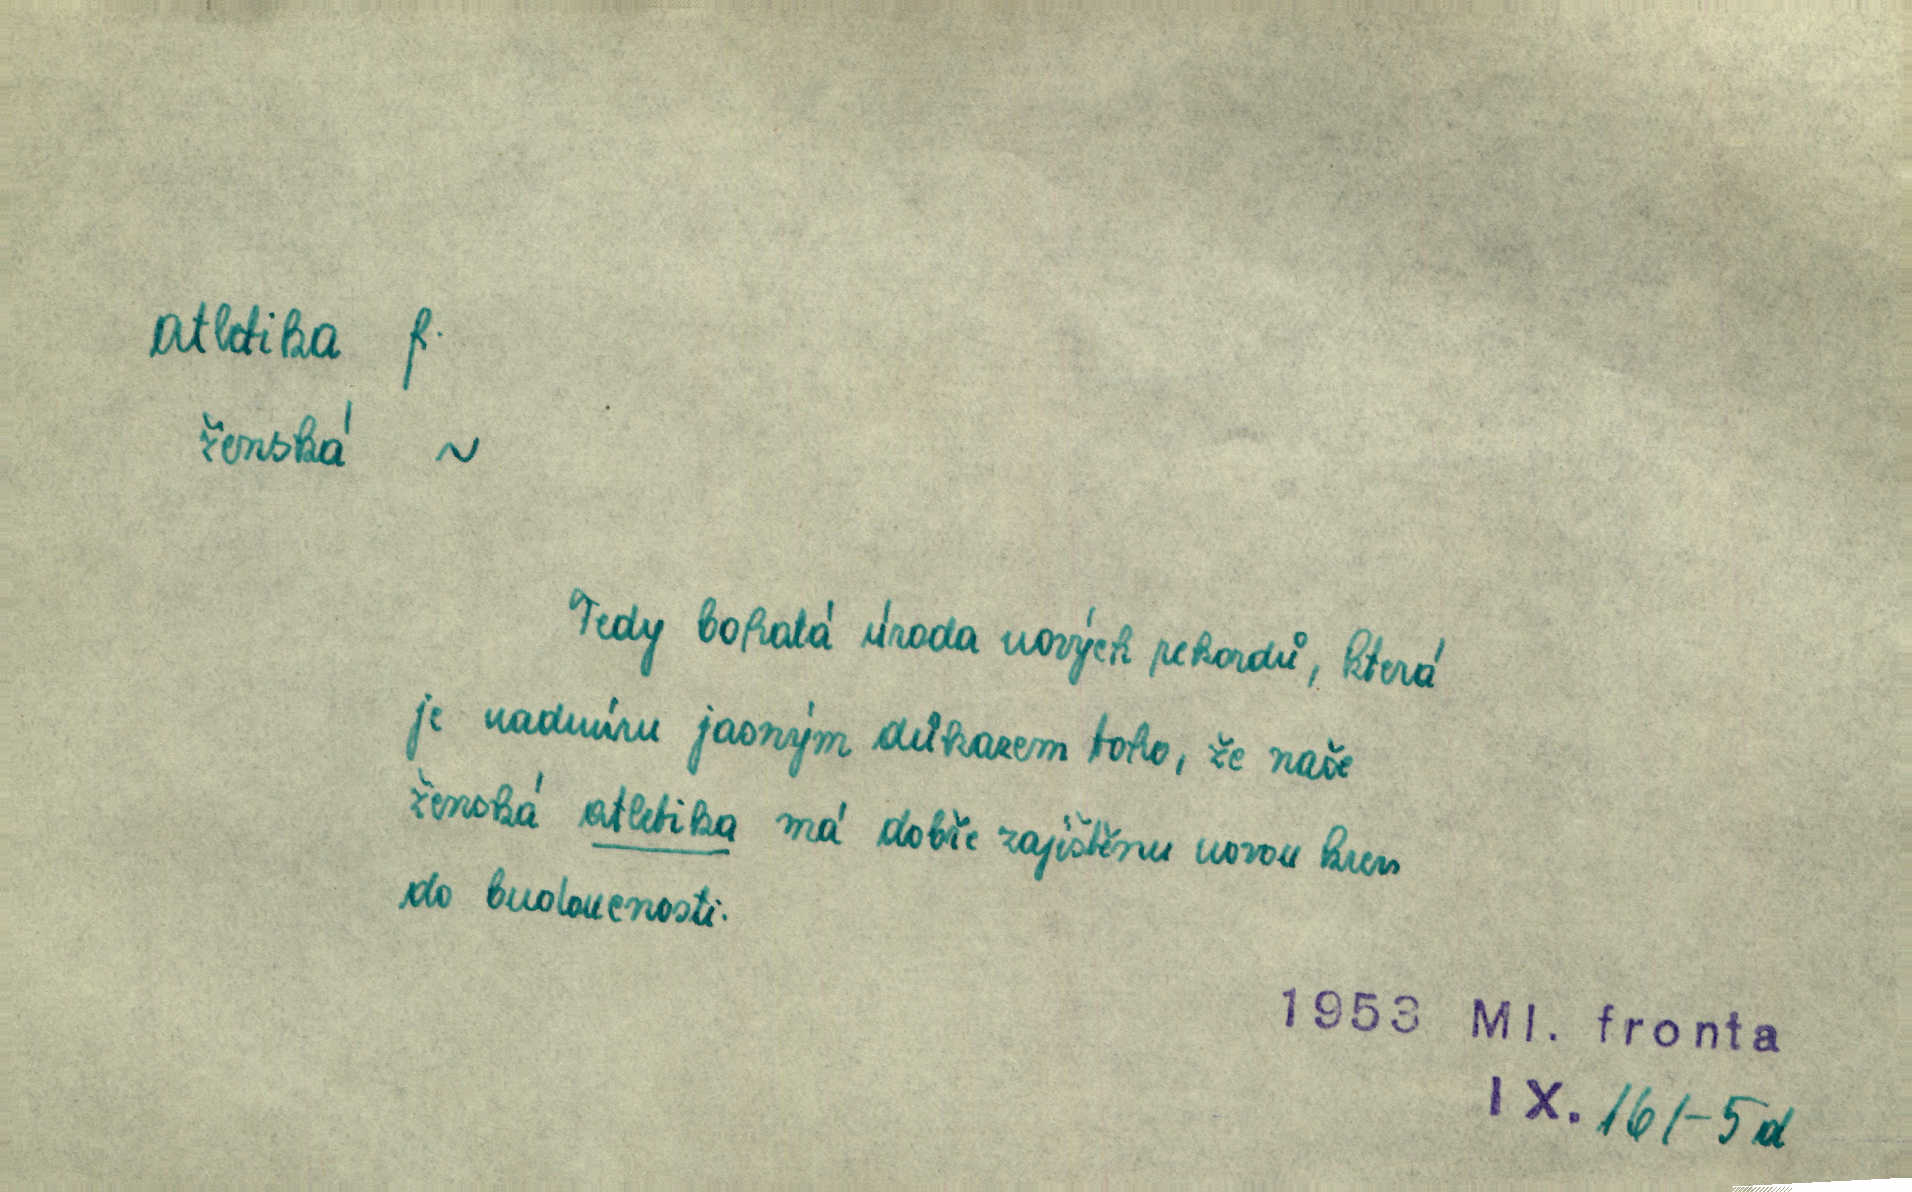 atletika f.
ženská ~
Tedy bohatá úroda nových rekordů, která
je nadmíru jasným důkazem toho, že naše
ženská atletika má dobře zajištěnu novou krev
do budoucnosti.
1953 Ml. fronta
IX. 161-5d